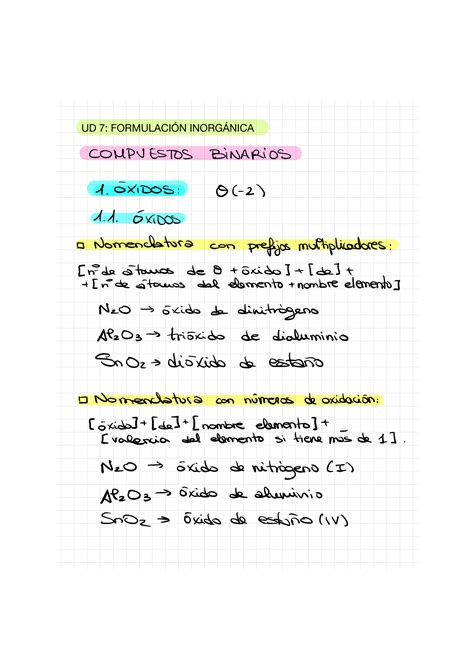 UD 7: FORMULACIÓN INORGÁNICA
COMPUESTOS BINARIOS
1. ÓXIDOS: O(-2)
1.1. ÓXIDOS
Nomenclatura con prefijos multiplicadores:
[nº de átomos de O + óxido] + [de] +
+ [nº de átomos del elemento + nombre elemento]
N2O → óxido de dinitrógeno
Al2O3 → trióxido de dialuminio
SnO2 → dióxido de estaño
Nomenclatura con números de oxidación:
[óxido] + [de] + [nombre elemento] +
[valencia del elemento si tiene más de 1].
N2O → óxido de nitrógeno (I)
Al2O3 → óxido de aluminio
SnO2 → óxido de estaño (IV)